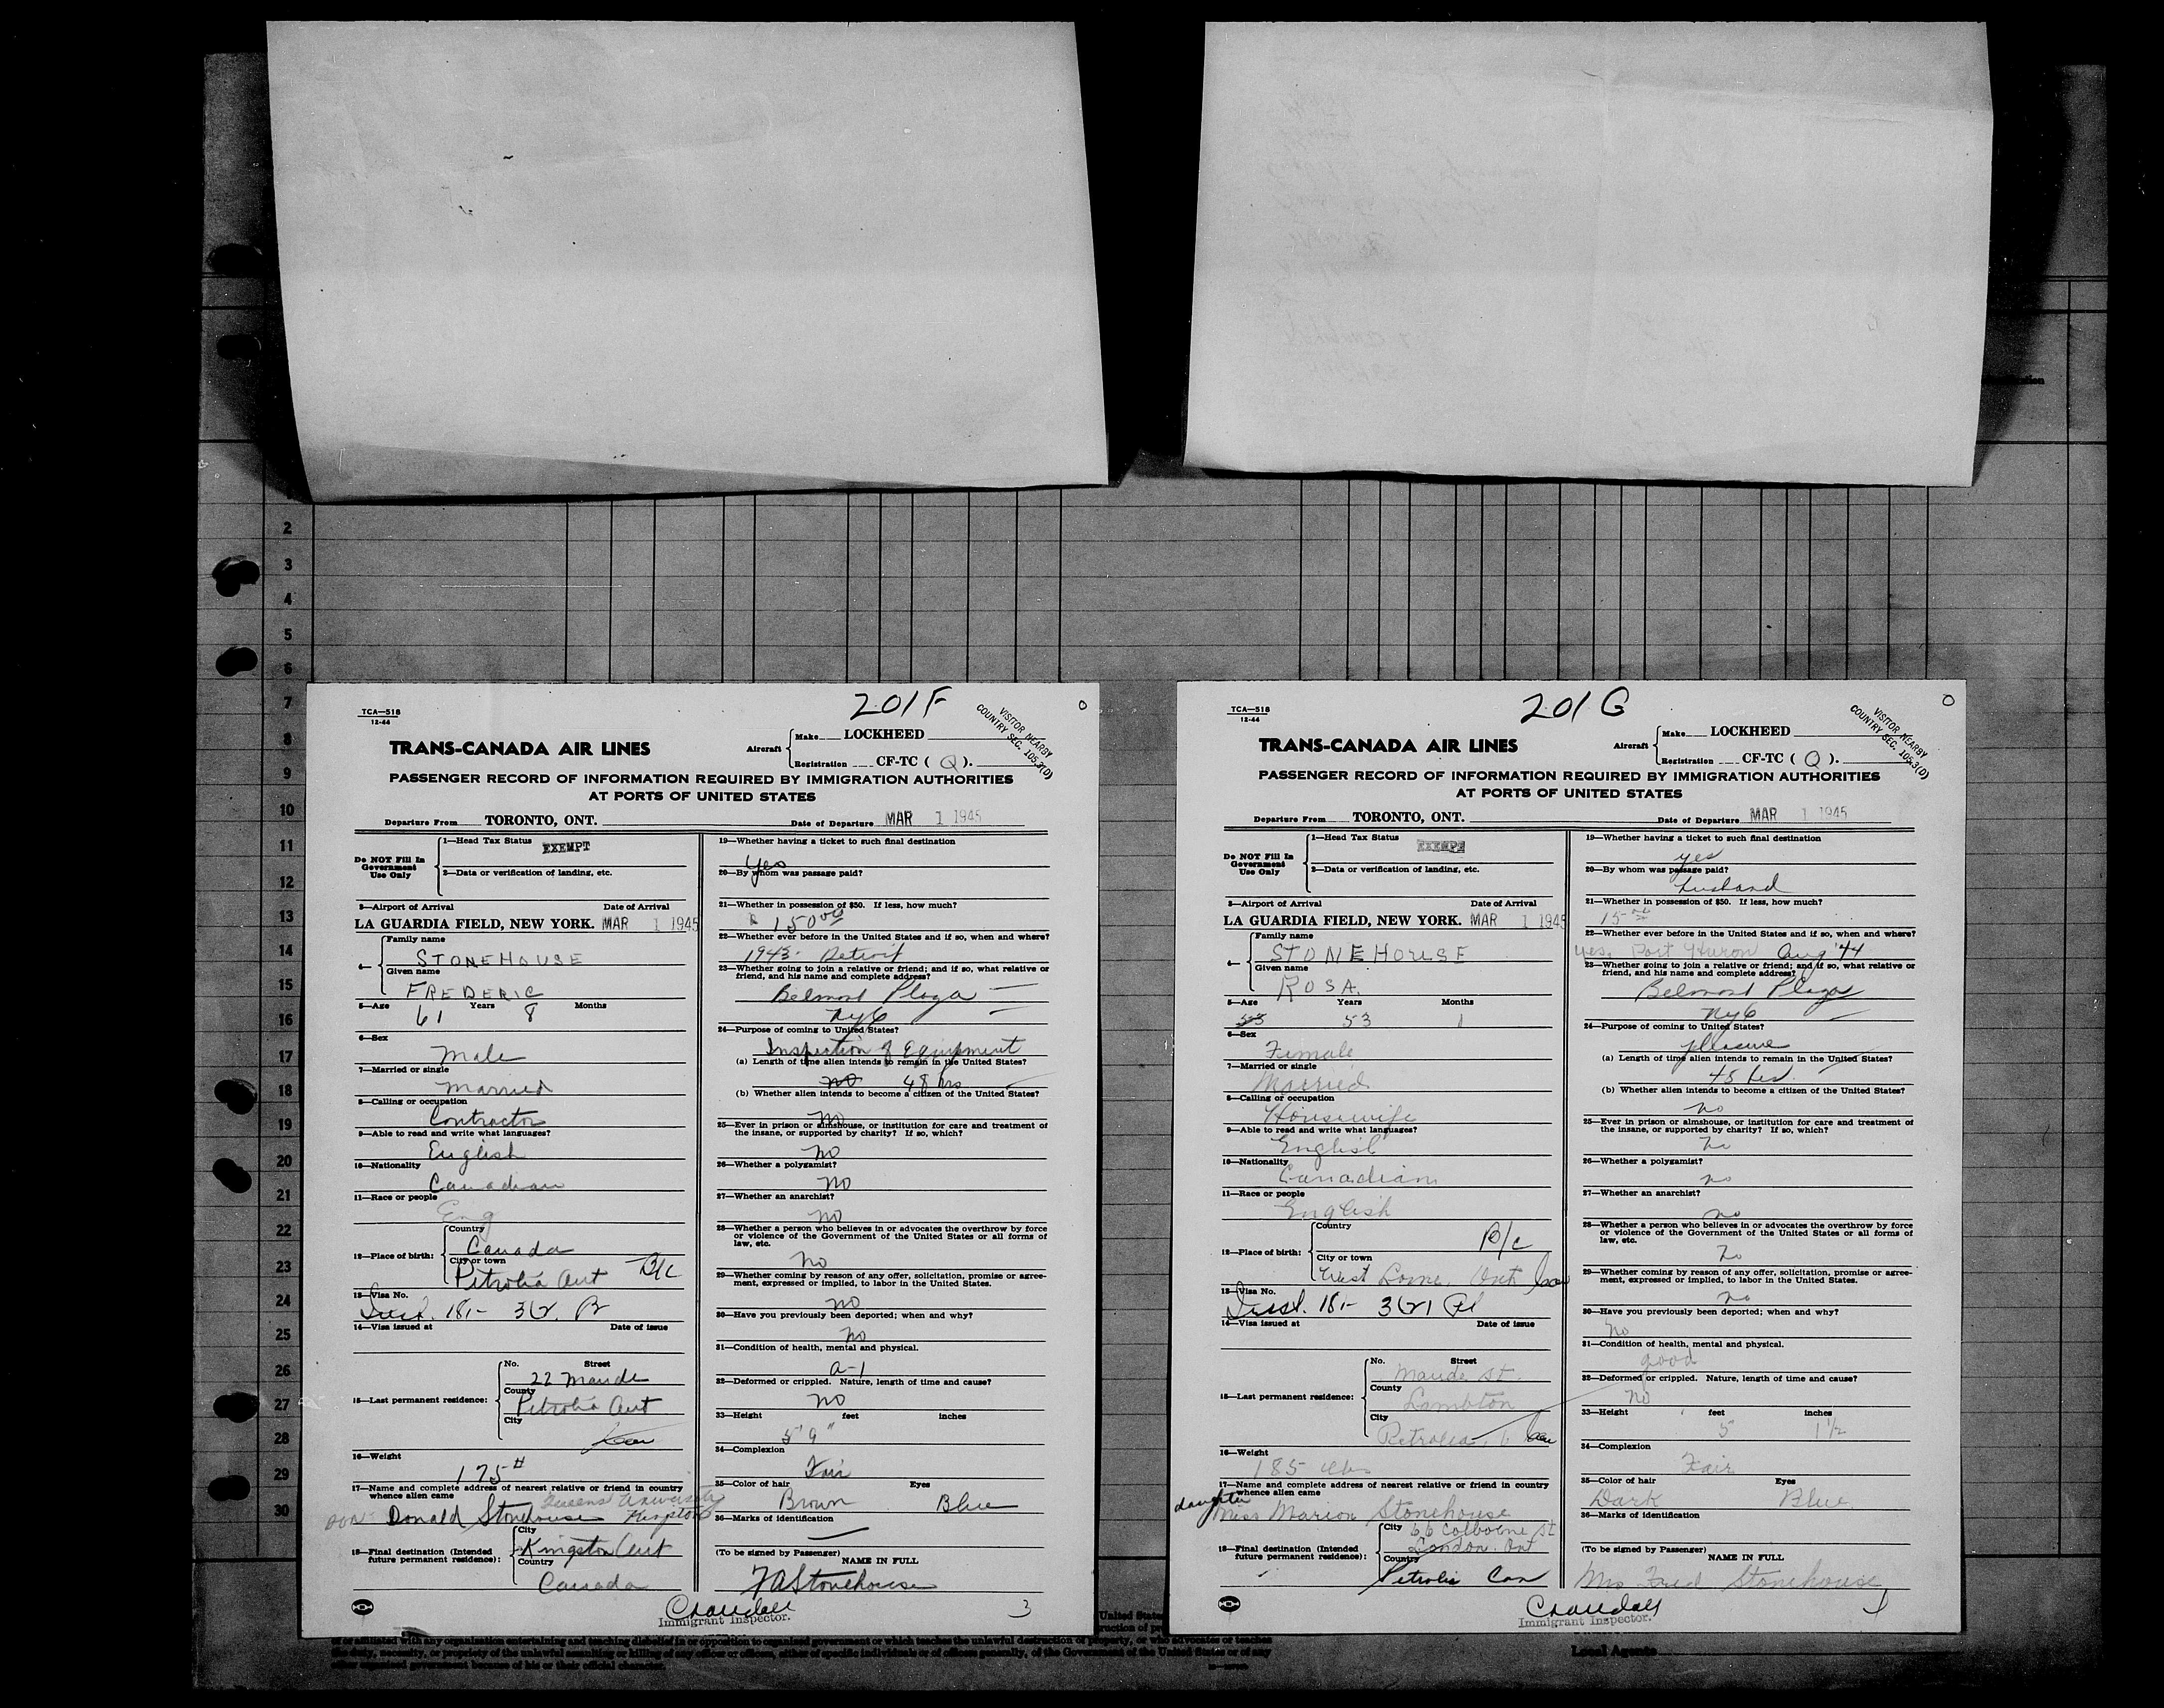 2
3
4
5
6
7
8
9
10
11
12
13
14
15
16
17
18
19
20
21
22
23
24
25
26
27
28
29
30
201F
TCA—518
12-44
VISITOR NEARBY
COUNTRY SEC. 105.3(D)
TRANS-CANADA AIR LINES
Aircraft
Make LOCKHEED
Registration CF-TC ( Q ).
PASSENGER RECORD OF INFORMATION REQUIRED BY IMMIGRATION AUTHORITIES
AT PORTS OF UNITED STATES
Departure From TORONTO, ONT. Date of Departure MAR 1 1945
Do NOT Fill In
Government
Use Only
1—Head Tax Status EXEMPT
2—Data or verification of landing, etc.
3—Airport of Arrival Date of Arrival
LA GUARDIA FIELD, NEW YORK. MAR 1 1945
4—
Family name
STONEHOUSE
Given name
FREDERIC
5—Age Years Months
61 8
6—Sex
Male
7—Married or single
Married
8—Calling or occupation
Contractor
9—Able to read and write what languages?
English
10—Nationality
Canadian
11—Race or people
Eng
12—Place of birth:
Country
Canada
City or town
Petrolia Ont B/C
13—Visa No.
181-
14—Visa issued at Date of issue
15—Last permanent residence:
No. Street
22 Maude
County
Petrolia Ont
City
16—Weight
175#
17—Name and complete address of nearest relative or friend in country
whence alien came
Queens University
Donald Stonehouse Kingston
18—Final destination (Intended
future permanent residence):
City
Kingston Ont
Country
Canada
19—Whether having a ticket to such final destination
Yes
20—By whom was passage paid?
21—Whether in possession of $50. If less, how much?
150 00
22—Whether ever before in the United States and if so, when and where?
1943- Detroit
23—Whether going to join a relative or friend; and if so, what relative or
friend, and his name and complete address?
Belmont Plaza
NYC
24—Purpose of coming to United States?
Inspection of Equipment
(a) Length of time alien intends to remain in the United States?
no 48 hrs
(b) Whether alien intends to become a citizen of the United States?
no
25—Ever in prison or almshouse, or institution for care and treatment of
the insane, or supported by charity? If so, which?
no
26—Whether a polygamist?
no
27—Whether an anarchist?
no
28—Whether a person who believes in or advocates the overthrow by force
or violence of the Government of the United States or all forms of
law, etc.
no
29—Whether coming by reason of any offer, solicitation, promise or agree-
ment, expressed or implied, to labor in the United States.
no
30—Have you previously been deported; when and why?
no
31—Condition of health, mental and physical.
A-1
32—Deformed or crippled. Nature, length of time and cause?
no
33—Height feet inches
5' 9"
34—Complexion
Fair
35—Color of hair Eyes
Brown Blue
36—Marks of identification
(To be signed by Passenger)
NAME IN FULL
FAStonehouse
Crandall
Immigrant Inspector.
3
201G
TCA—518
12-44
VISITOR NEARBY
COUNTRY SEC. 105.3(D)
TRANS-CANADA AIR LINES
Aircraft
Make LOCKHEED
Registration CF-TC ( Q ).
PASSENGER RECORD OF INFORMATION REQUIRED BY IMMIGRATION AUTHORITIES
AT PORTS OF UNITED STATES
Departure From TORONTO, ONT. Date of Departure MAR 1 1945
Do NOT Fill In
Government
Use Only
1—Head Tax Status EXEMPT
2—Data or verification of landing, etc.
3—Airport of Arrival Date of Arrival
LA GUARDIA FIELD, NEW YORK. MAR 1 1945
4—
Family name
STONEHOUSE
Given name
ROSA.
5—Age Years Months
53 53 1
6—Sex
Female
7—Married or single
Married
8—Calling or occupation
Housewife
9—Able to read and write what languages?
English
10—Nationality
Canadian
11—Race or people
English
12—Place of birth:
Country
B/C
City or town
West Lorne. Ont Can
13—Visa No.
181-
14—Visa issued at Date of issue
15—Last permanent residence:
No. Street
Maude St.
County
Lambton
City
Petrolia. Can
16—Weight
185 lbs
17—Name and complete address of nearest relative or friend in country
whence alien came
daughter
Miss Marion Stonehouse
18—Final destination (Intended
future permanent residence):
City 66 Colborne St
London. Ont
Country
Petrolia Can
19—Whether having a ticket to such final destination
yes
20—By whom was passage paid?
husband
21—Whether in possession of $50. If less, how much?
15 00
22—Whether ever before in the United States and if so, when and where?
yes. Port Huron Aug '44
23—Whether going to join a relative or friend; and if so, what relative or
friend, and his name and complete address?
Belmont Plaza
NYC
24—Purpose of coming to United States?
pleasure
(a) Length of time alien intends to remain in the United States?
(b) Whether alien intends to become a citizen of the United States?
no
25—Ever in prison or almshouse, or institution for care and treatment of
the insane, or supported by charity? If so, which?
no
26—Whether a polygamist?
no
27—Whether an anarchist?
no
28—Whether a person who believes in or advocates the overthrow by force
or violence of the Government of the United States or all forms of
law, etc.
no
29—Whether coming by reason of any offer, solicitation, promise or agree-
ment, expressed or implied, to labor in the United States.
no
30—Have you previously been deported; when and why?
no
31—Condition of health, mental and physical.
good
32—Deformed or crippled. Nature, length of time and cause?
no
33—Height feet inches
5 1 1/2
34—Complexion
Fair
35—Color of hair Eyes
Dark Blue
36—Marks of identification
(To be signed by Passenger)
NAME IN FULL
Mrs Fred Stonehouse
Crandall
Immigrant Inspector.
or affiliated with any organization entertaining and teaching disbelief in or opposition to organized government or which teaches the unlawful destruction of property, or who advocates or teaches
necessity, or propriety of the unlawful assaulting or killing of any officer or officers, either of specific individuals or of officers generally, of the Government of the United States or of any
other organized government because of his or their official character.